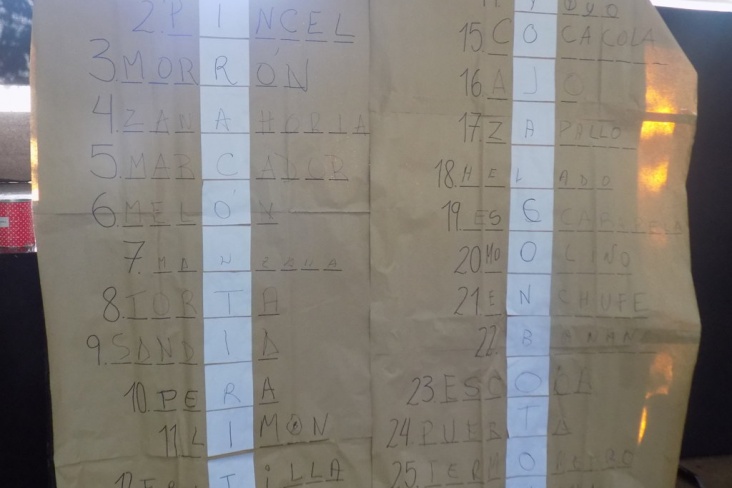 2. PINCEL
3. MORRÓN
4. ZANAHORIA
5. MARCADOR
6. MELÓN
7. MANZANA
8. TORTA
9. SANDIA
10. PERA
11. LIMON
15. COCACOLA
16. AJO
17. ZAPALLO
18. HELADO
19.
20. MOLINO
21. ENCHUFE
22. BANANA
23. ESCOBA
24. PUERTA
25.